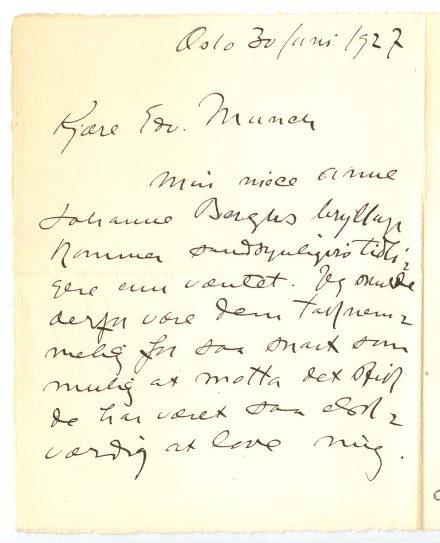 Oslo 30 juni 1927
Kjære Edv. Munch
Min niece Anne
Johanne Berghs bryllup
kommer sandsynligvis tidli-
gere enn væntet. Jeg skulde
derfor være dem taknem-
melig for saa snart som
mulig at motta det stik
de har været saa elsk-
værdig at love mig.